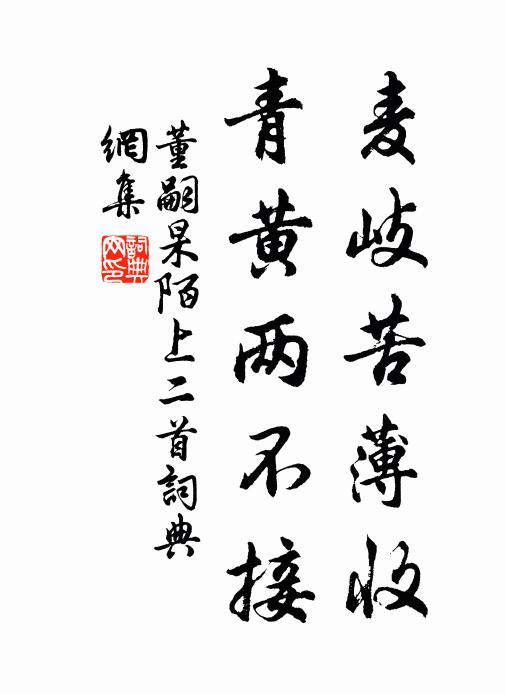 麦岐苦薄收
青黄两不接
董嗣杲陌上二首詞典
網集
詞典
网印